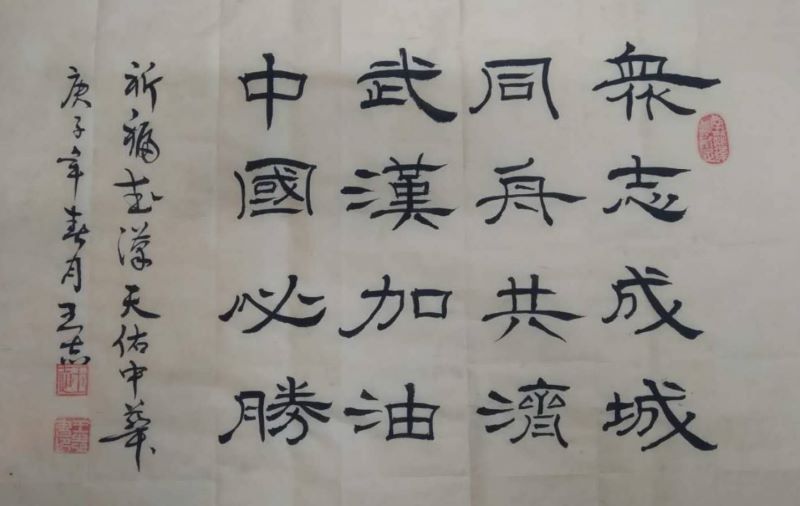 衆志成城
同舟共濟
武漢加油
中國必勝
祈福武漢天佑中華
庚子年春月王志